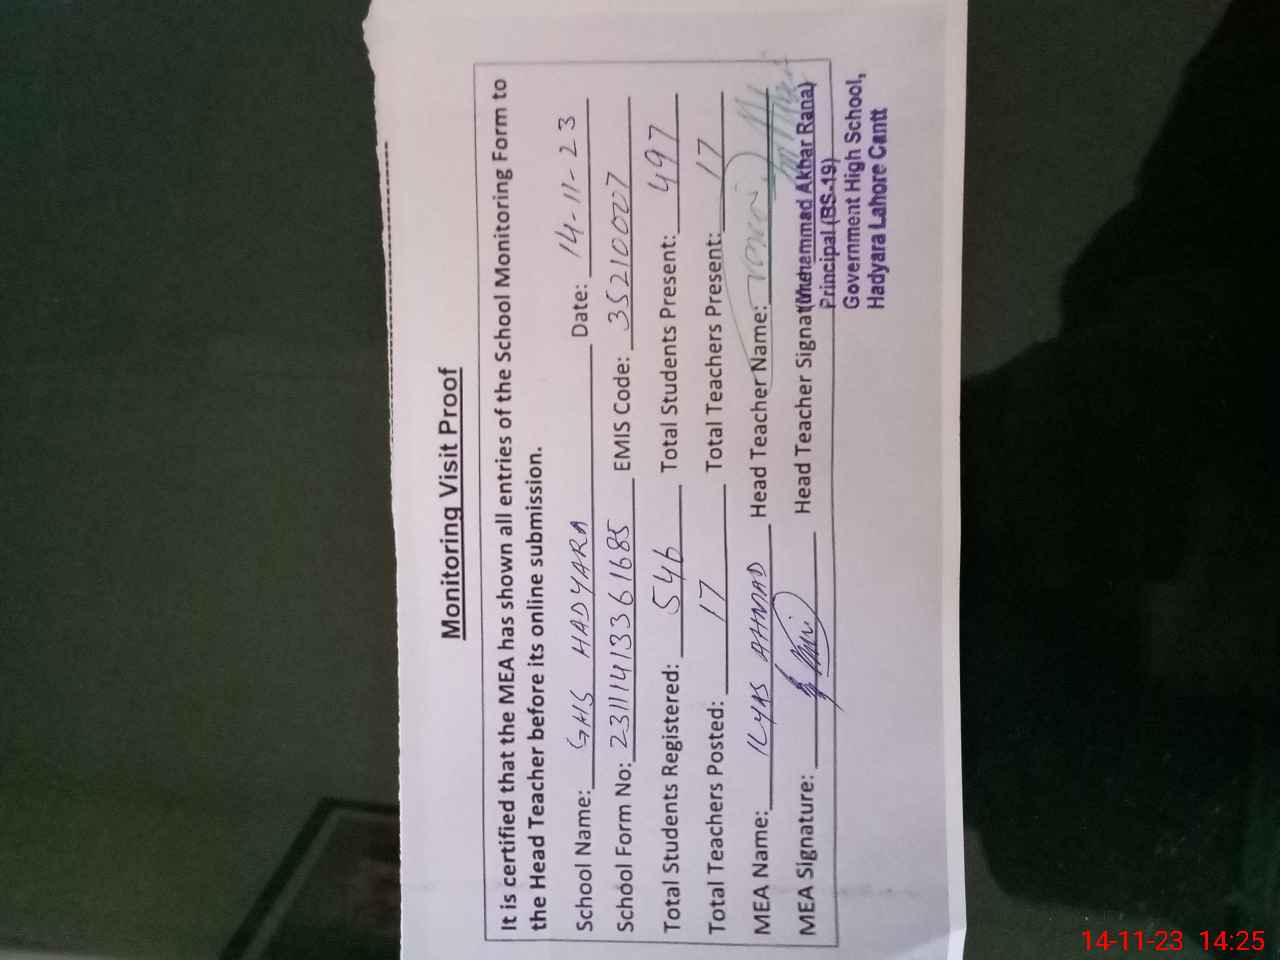 Monitoring Visit Proof
It is certified that the MEA has shown all entries of the School Monitoring Form to
the Head Teacher before its online submission.
School Name: GHS HADYARA Date: 14-11-23
School Form No: 23111413361685 EMIS Code: 35210007
Total Students Registered: 546 Total Students Present: 497
Total Teachers Posted: 17 Total Teachers Present: 17
MEA Name: ILYAS AHMAD Head Teacher Name:
MEA Signature: Head Teacher Signat
(Muhammad Akbar Rana)
Principal (BS-19)
Government High School,
Hadyara Lahore Cantt
14-11-23 14:25